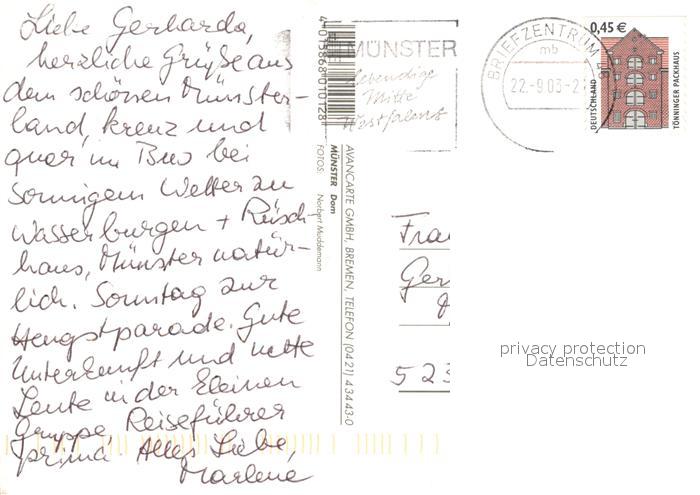 Liebe Gerharda,
herzliche Grüße aus
dem schönen Münster-
land, kreuz und
quer im Bus bei
sonnigem Wetter zu
Wasserburgen + Rüsch-
haus, Münster natür-
lich. Sonntag zur
Hengstparade. Gute
Unterkunft und nette
Leute in der kleinen
Gruppe, Reiseführer
prima. Alles Liebe,
Marlene
4 015868 010128
AVANCARTE GMBH, BREMEN, TELEFON (04 21) 4 34 43-0
MÜNSTER Dom
FOTOS: Norbert Muddemann
MÜNSTER
lebendige
Mitte
Westfalens
BRIEFZENTRUM 48
mb
22.-9.03-2
0,45 €
DEUTSCHLAND
TÖNNINGER PACKHAUS
Frau
Ger
523
privacy protection
Datenschutz